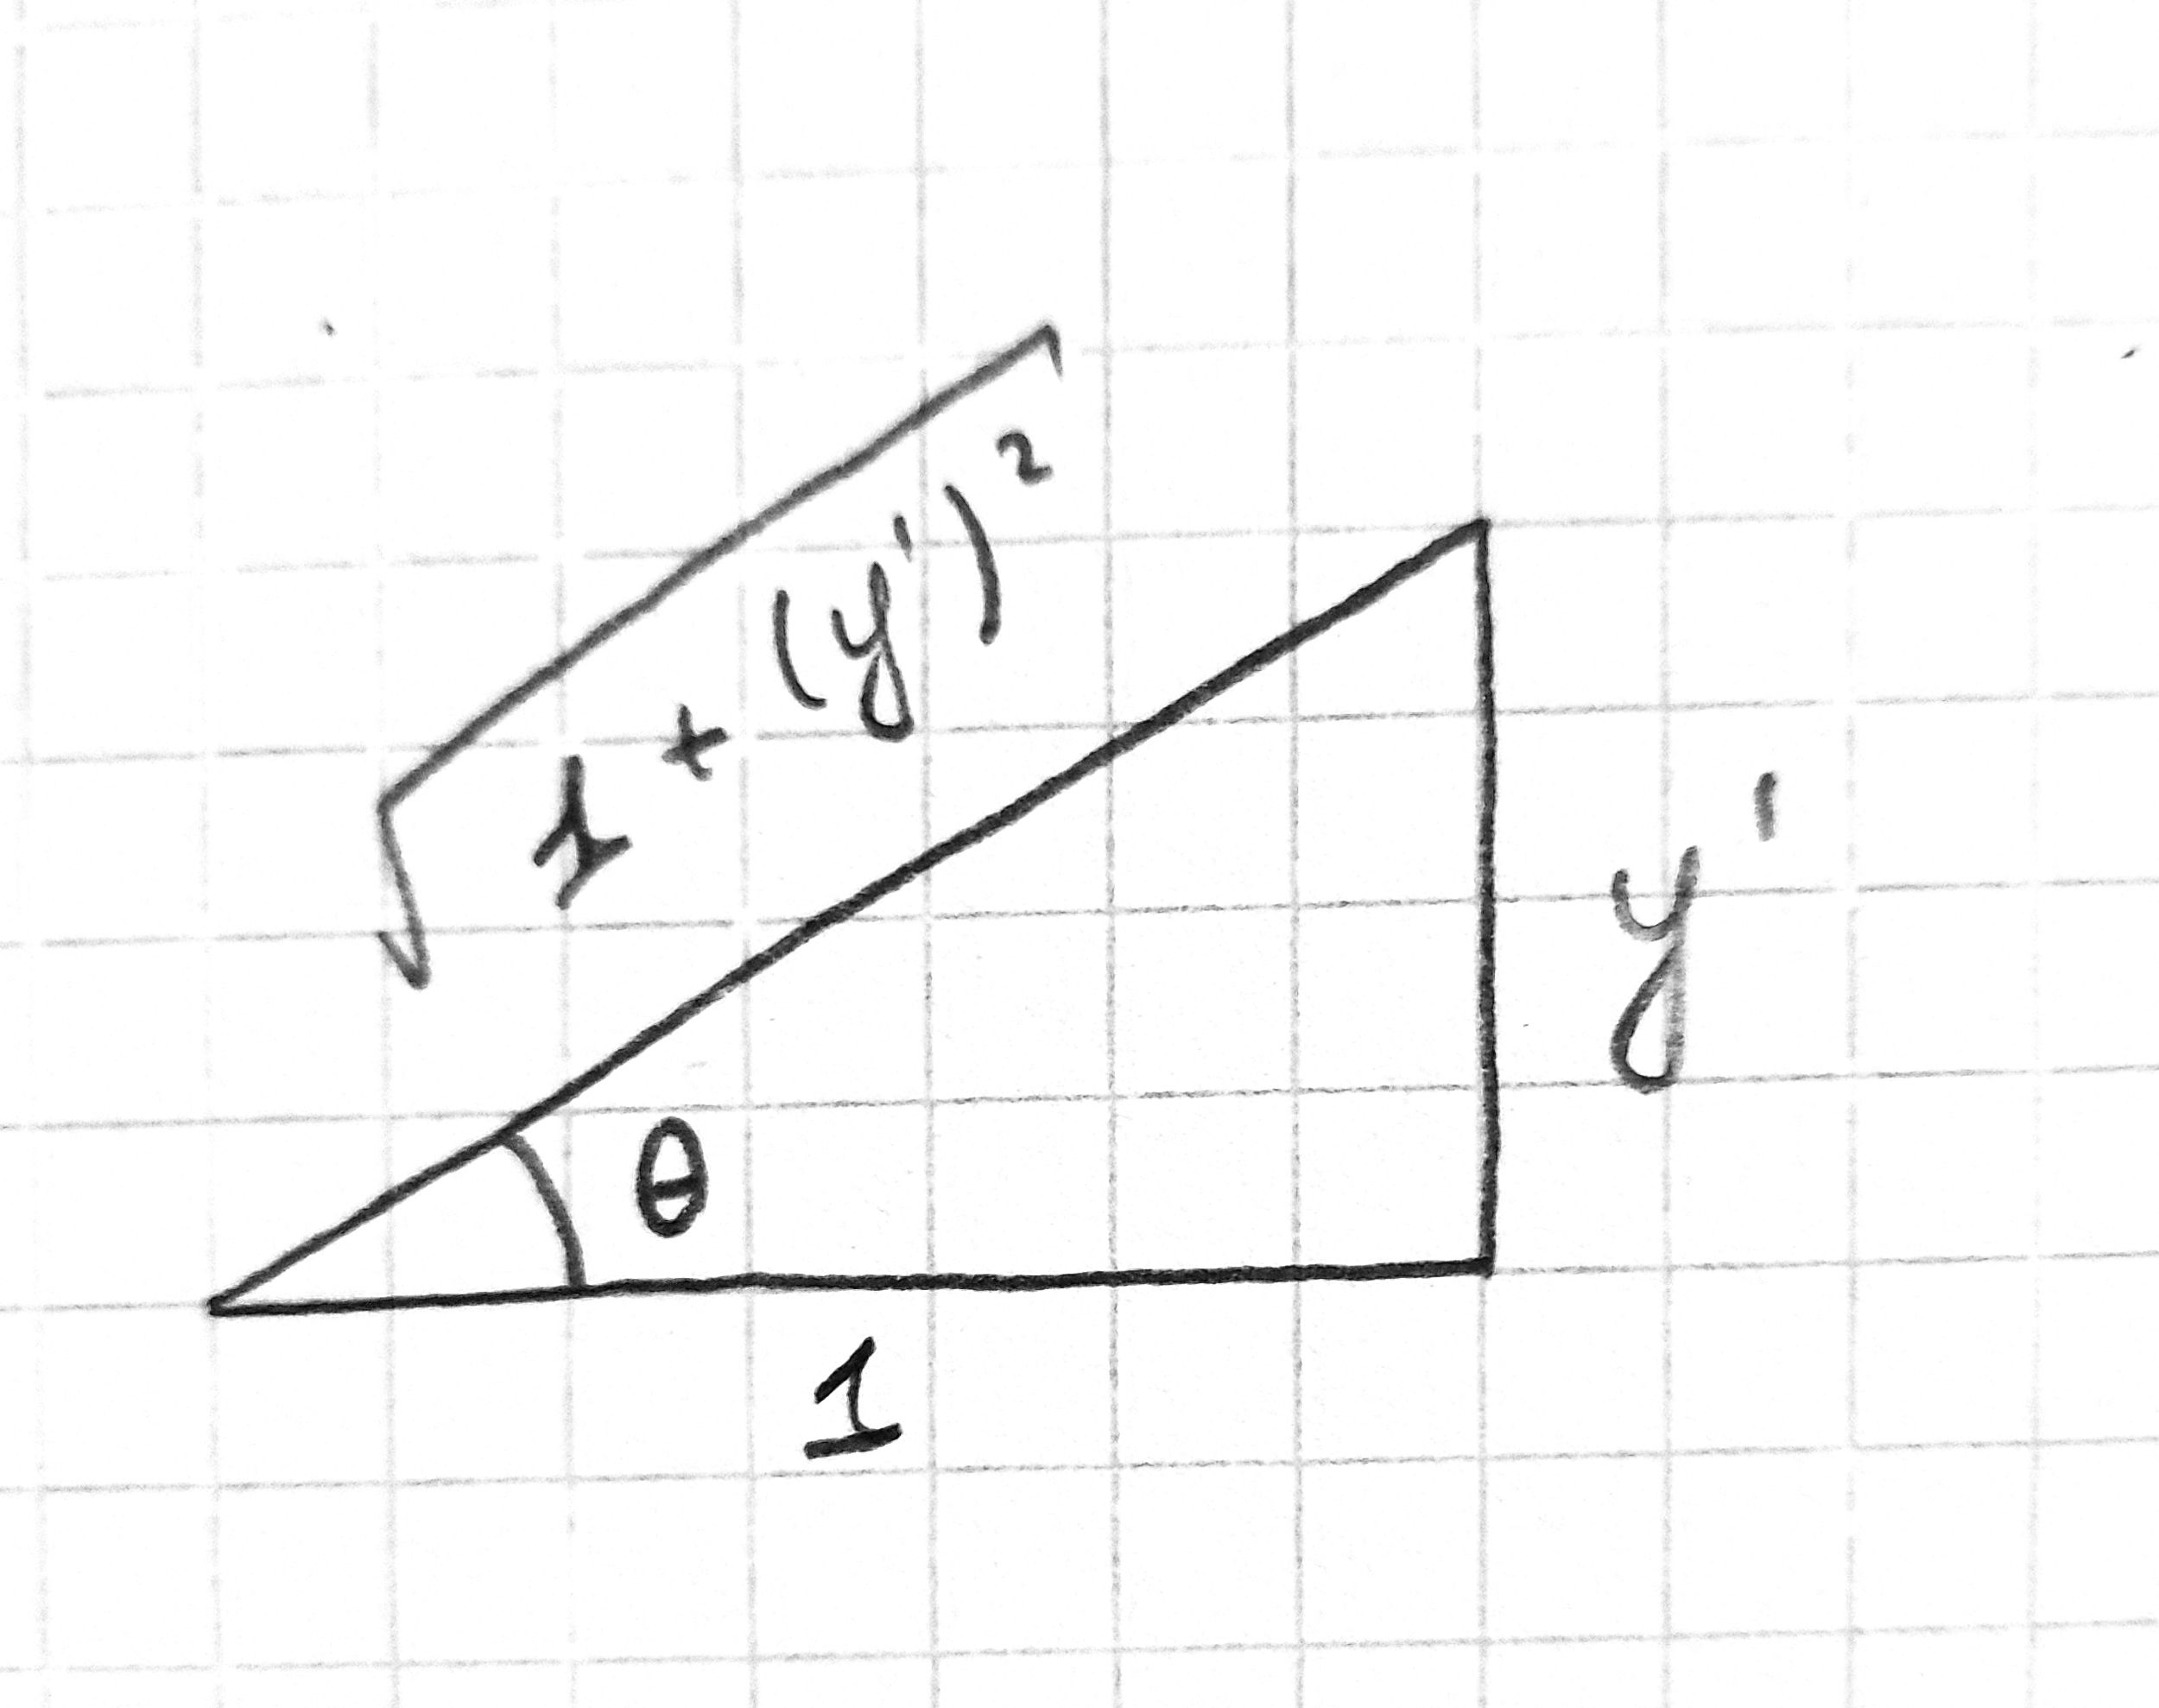 √1 + (y')²
y'
θ
1